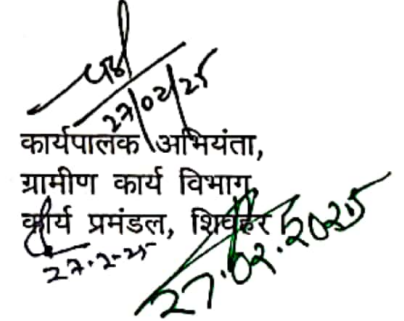 27/02/25
कार्यपालक अभियंता,
ग्रामीण कार्य विभाग
कार्य प्रमंडल, शिवहर
27.2-25
27.02.2025